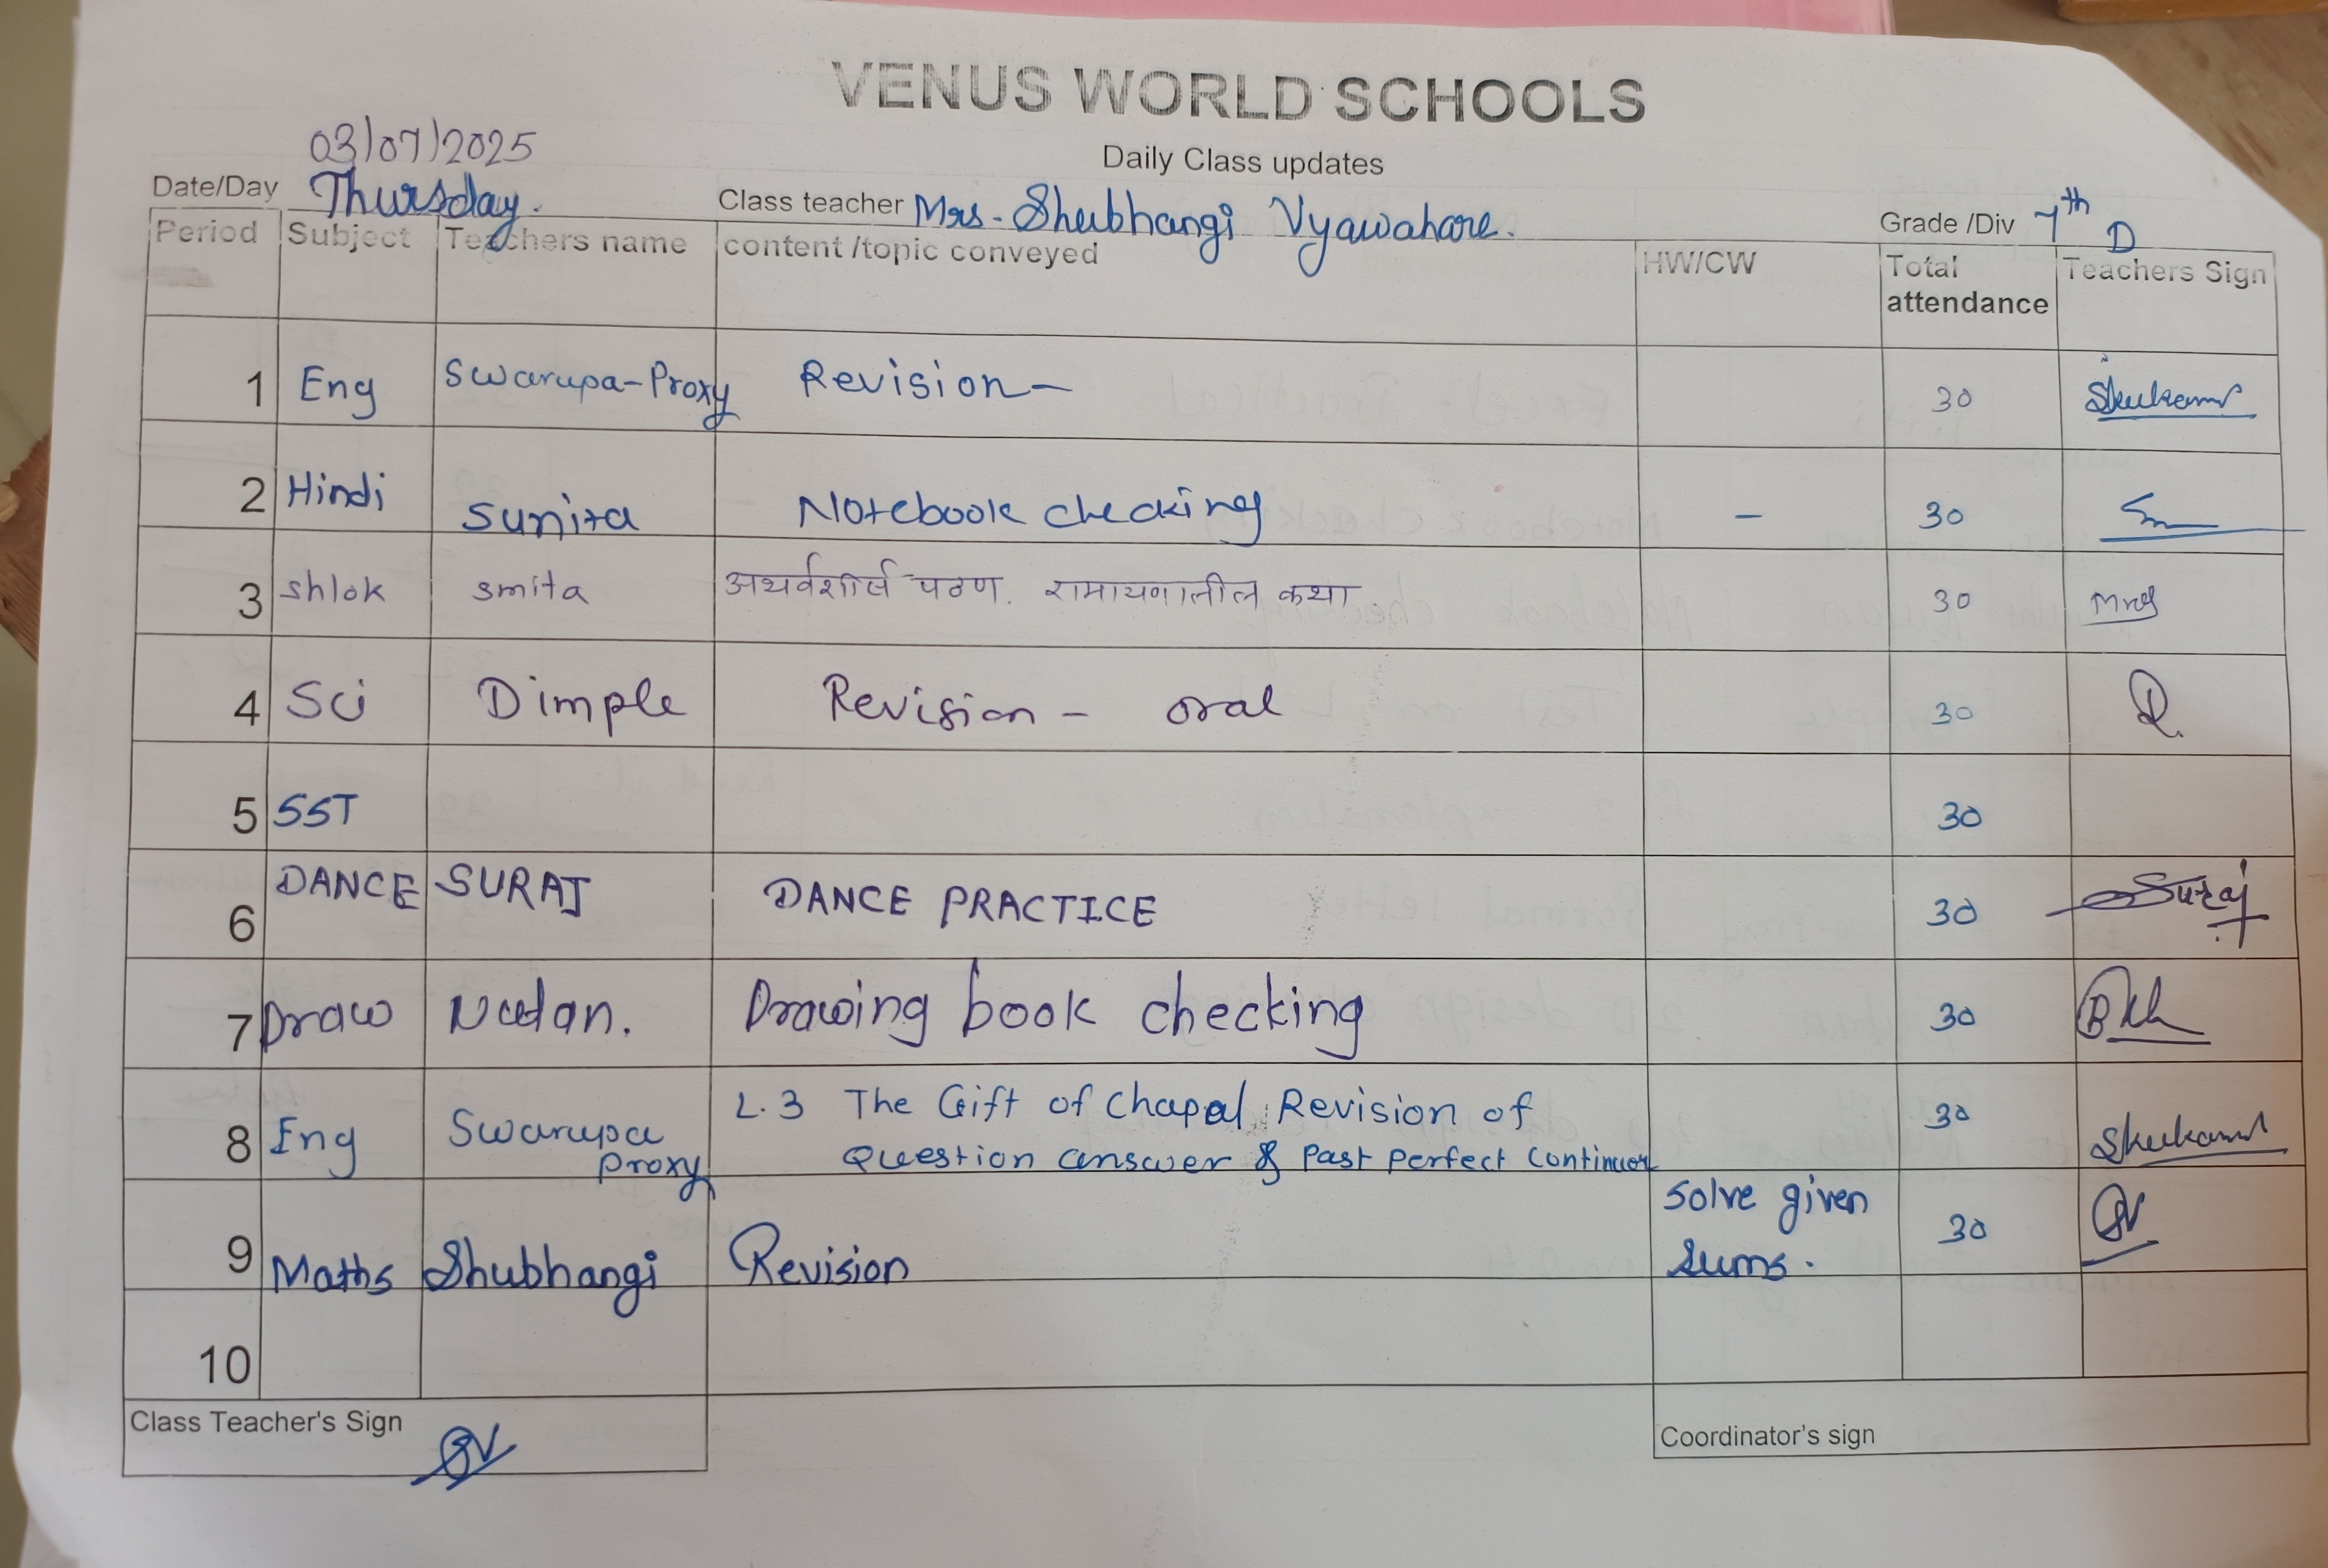 VENUS WORLD SCHOOLS
Daily Class updates
03/07/2025
Date/Day Thursday. Class teacher Mrs. Shubhangi Vyawahare. Grade /Div 7th D
Period Subject Teachers name content /topic conveyed HW/CW Total attendance Teachers Sign
1 Eng Swarupa-Proxy Revision- 30
2 Hindi Sunita Notebook checking - 30
3 shlok smita अथर्वशीर्ष पठण. रामायणातील कथा. 30
4 Sci Dimple Revision - oral 30
5 SST 30
6 DANCE SURAJ DANCE PRACTICE 30 Suraj
7 Draw Nutan. Drawing book checking 30
8 Eng Swarupa proxy L.3 The Gift of Chapal Revision of 30
Question answer & Past Perfect Continuou
9 Maths Shubhangi Revision Solve given sums. 30 SV
10
Class Teacher's Sign SV
Coordinator's sign